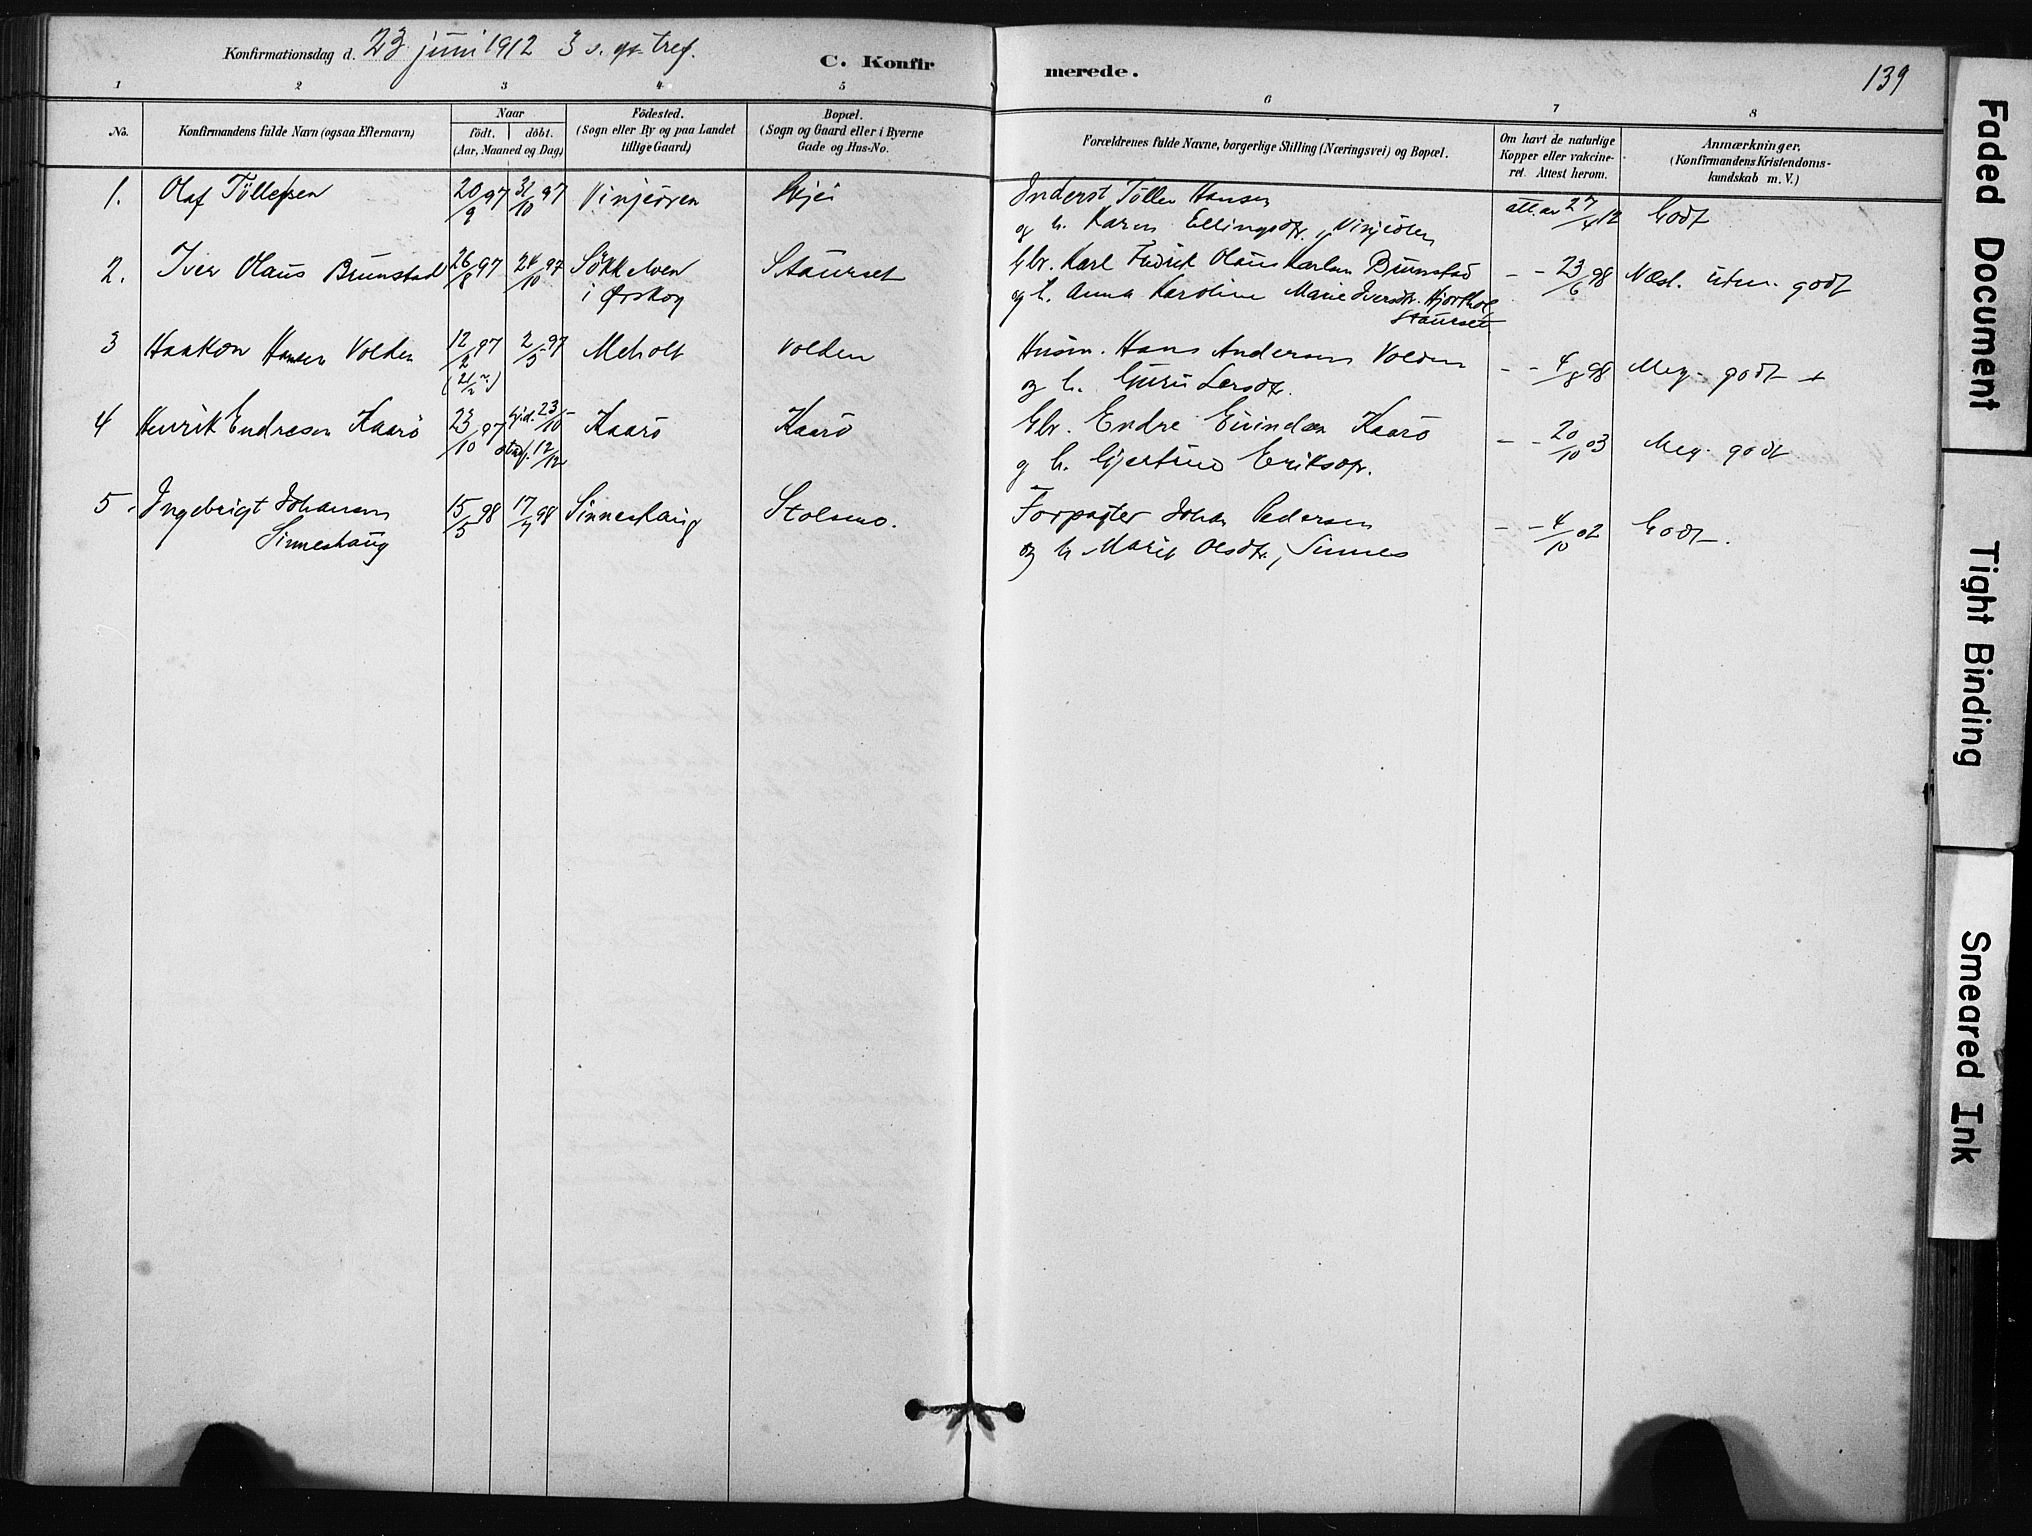 Konfirmationsdag d. 23 juni 1912 3 s. e. tref.
C. Konfirmerede.
139
1 2 3 4 5 6 7 8
No.
Konfirmandens fulde Navn (ogsaa Efternavn)
Naar
födt. döbt.
(Aar, Maaned og Dag)
Födested.
(Sogn eller By og paa Landet
tillige Gaard)
Bopæl.
(Sogn og Gaard eller i Byerne
Gade og Hus-No.
Forældrenes fulde Navne, borgerlige Stilling (Næringsvei) og Bopæl.
Om havt de naturlige
Kopper eller vakcine-
ret. Attest herom.
Anmærkninger.
(Konfirmandens Kristendoms-
kundskab m. V.)
1. Olaf Töllefsen 20/9 97 31/10 97 Vinjeören Skjei Inderst Töllen Hansen att. av 27/4 12 Godt
og h. Karen Ellingsdtr., Vinjeören
2. Iver Olaus Brunstad 26/8 97 24/10 97 Sökkelven Staurset Gbr. Karl Fredrik Olaus Karlsen Brunstad - - 23/6 98 Næst. utm. godt
i Ørskog
og h. Anna Karoline Marie Iversdtr. Hjorthol
Staurset
3 Haakon Hansen Volden 12/2 97 2/5 97 Meholt Volden Husm. Hans Andersen Volden - - 4/8 98 Meg. godt +
(21/2 ?)
og h. Guru Larsdtr.
4 Henrik Endresen Kaarö 23/10 97 hjd. 23/10 Kaarö Kaarö Gbr. Endre Eivindsen Kaarö - - 20/10 03 Meg. godt
stadf. 12/12
og h. Gjertine Eriksdtr.
5. Ingebrigt Johansen 15/5 98 17/7 98 Sinneshaug Stolsmo. Forpagter Johan Pedersen - - 4/10 02 Godt.
Sinneshaug
og h. Marit Olsdtr., Sinnes
Faded Document
Tight Binding
Smeared Ink